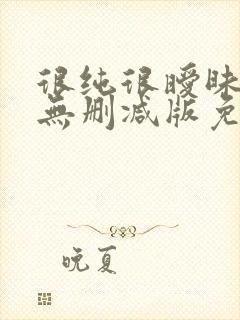 很纯很暧昧
無删减版免
晚夏